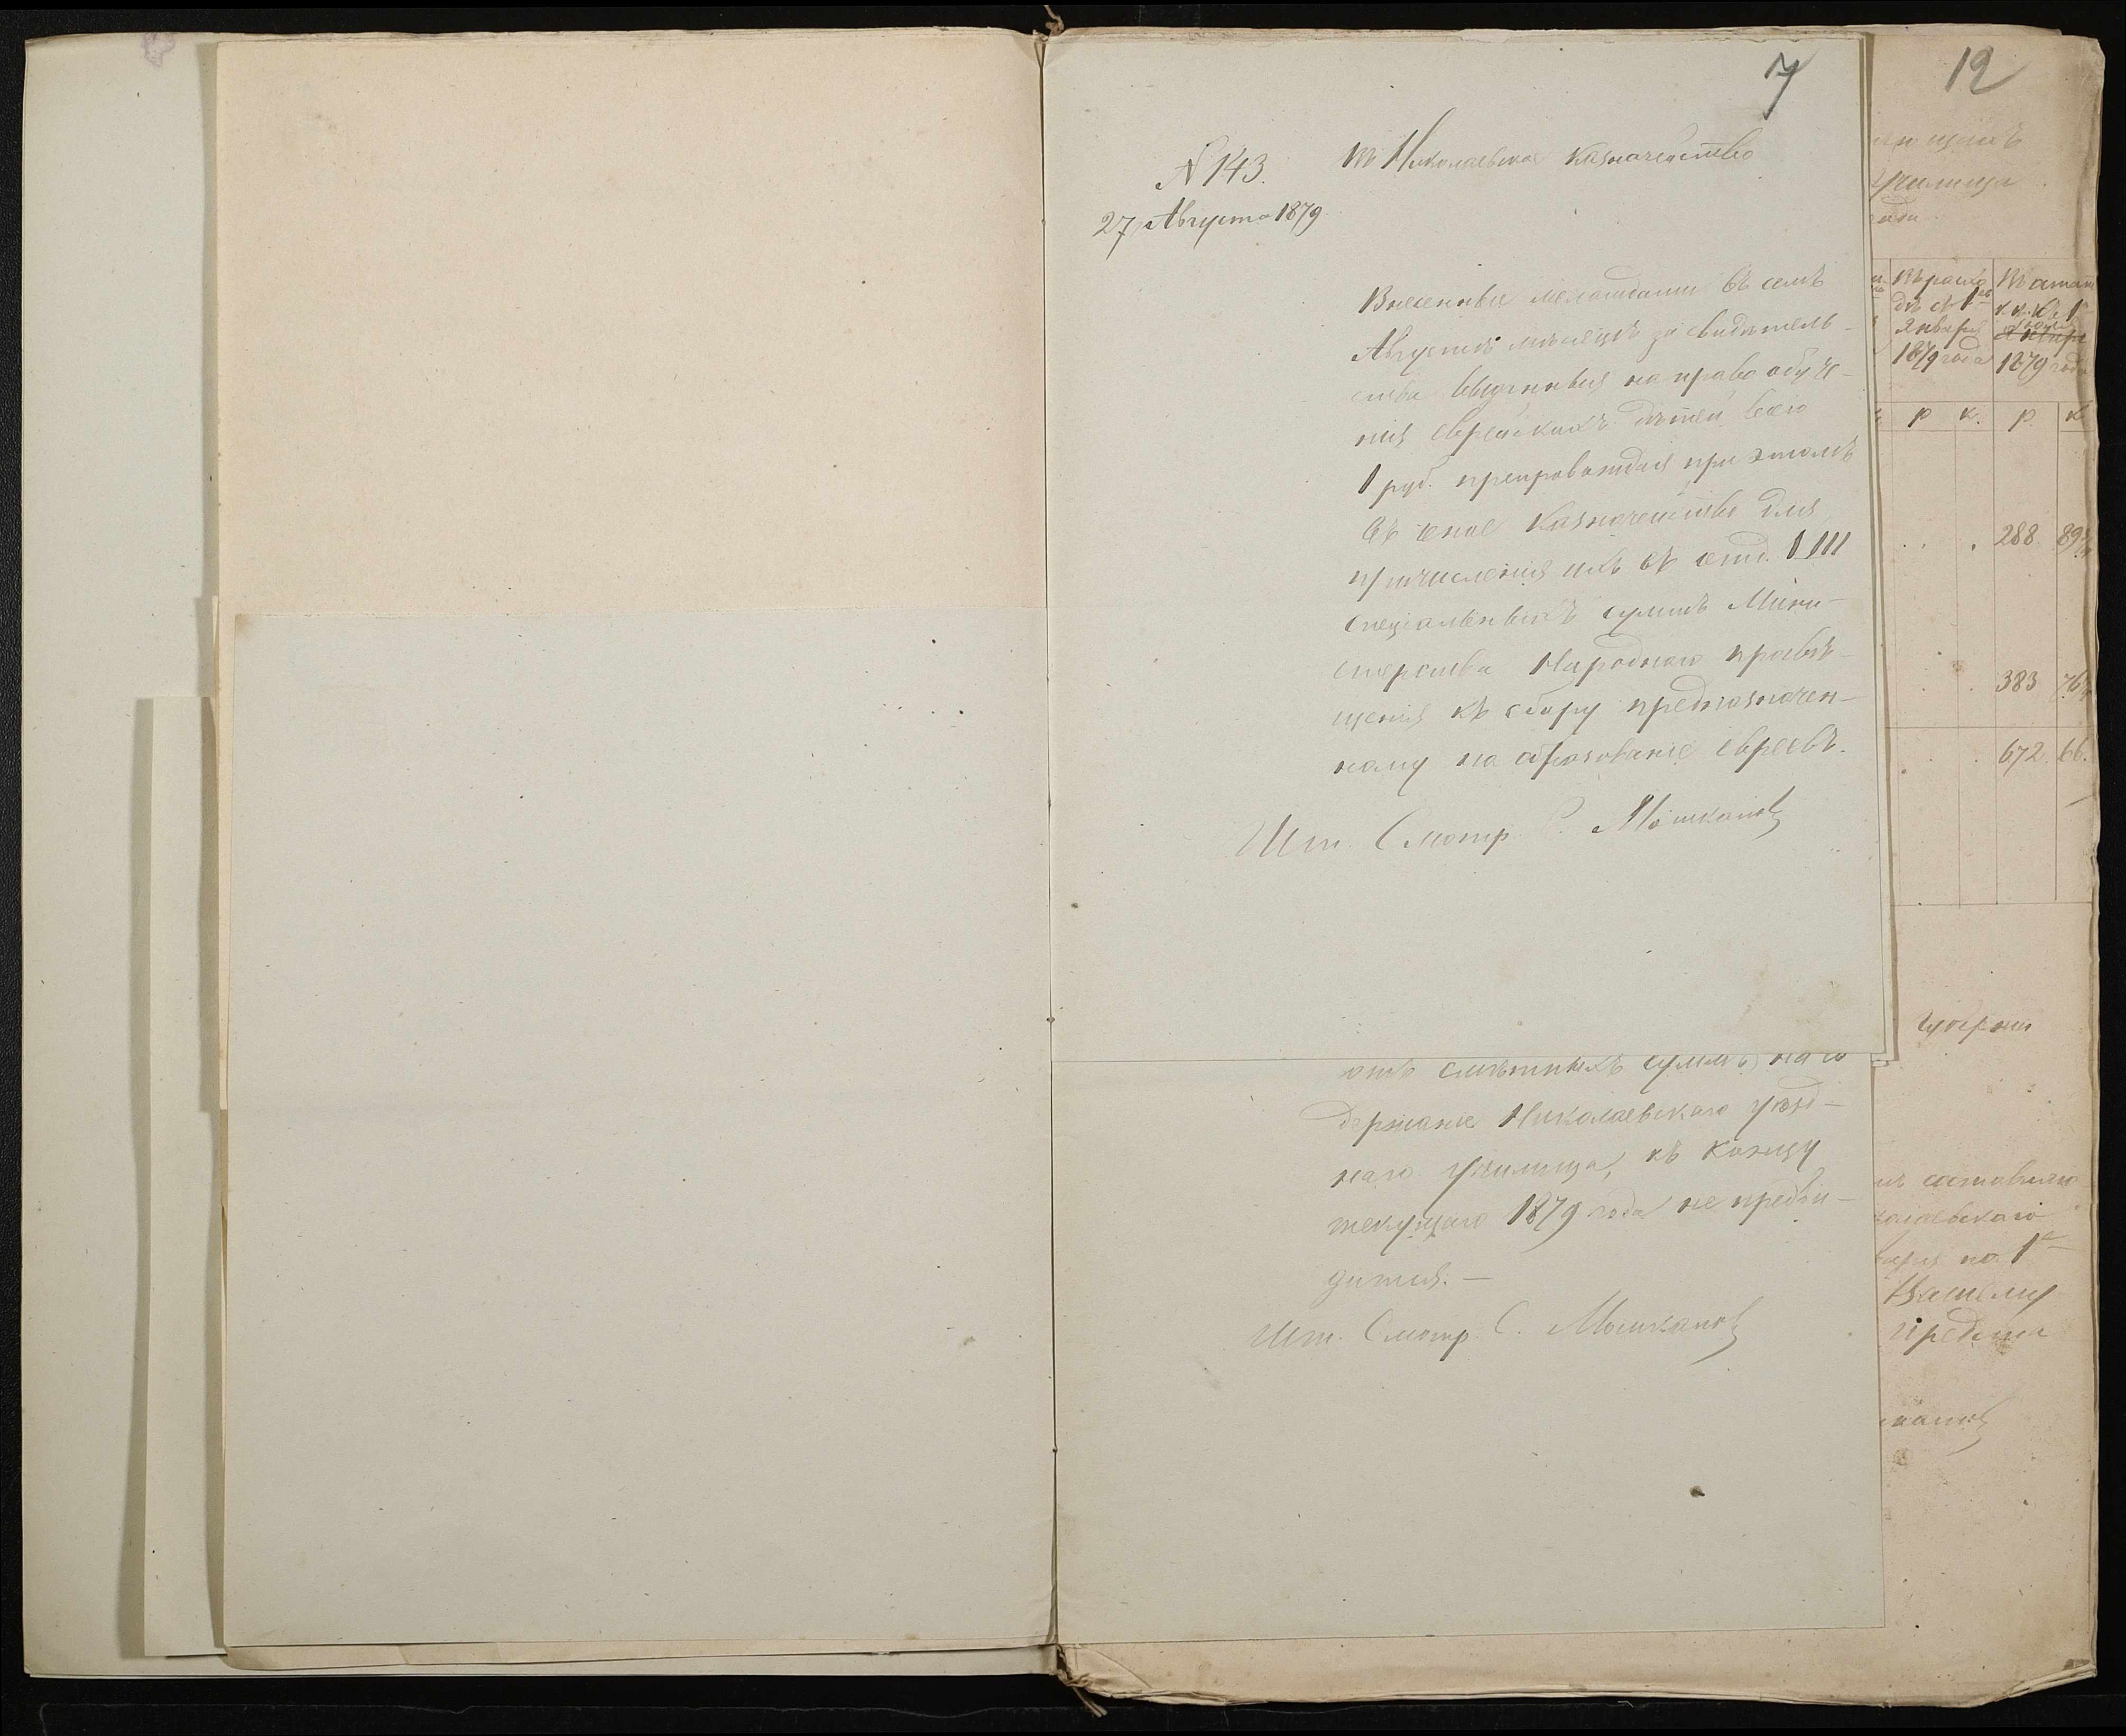 7
12
№ 143.
27 Августа 1879
Въ Николаевское Казначейство
Внесенные меламдами въ семъ
Августѣ мѣсяцѣ за свидѣтель-
ства выданныя на право обуче-
нія еврейскихъ дѣтей всего
1 руб. препровождая при этомъ
въ оное Казначейство для
причисленія ихъ къ отд. III
спеціальныхъ суммъ Мини-
стерства Народнаго просвѣ-
щенія къ сбору предназначен-
ному на образованіе евреевъ.
Шт. Смотр. С. Мошкановъ
отъ смѣтныхъ суммъ на со
держаніе Николаевскаго уѣзд-
наго училища, къ концу
текущаго 1879 года не предви-
дится. —
Шт. Смотр. С. Мошкановъ
Училища
года
Въ расхо
дѣ съ 1го
Января
1879 года
Въ остат
къ 1
1879 года
р к. р. к
288 89
383 76
672 66.
Губерніи
составлено
колаевскаго
варя по 1е
Вашему